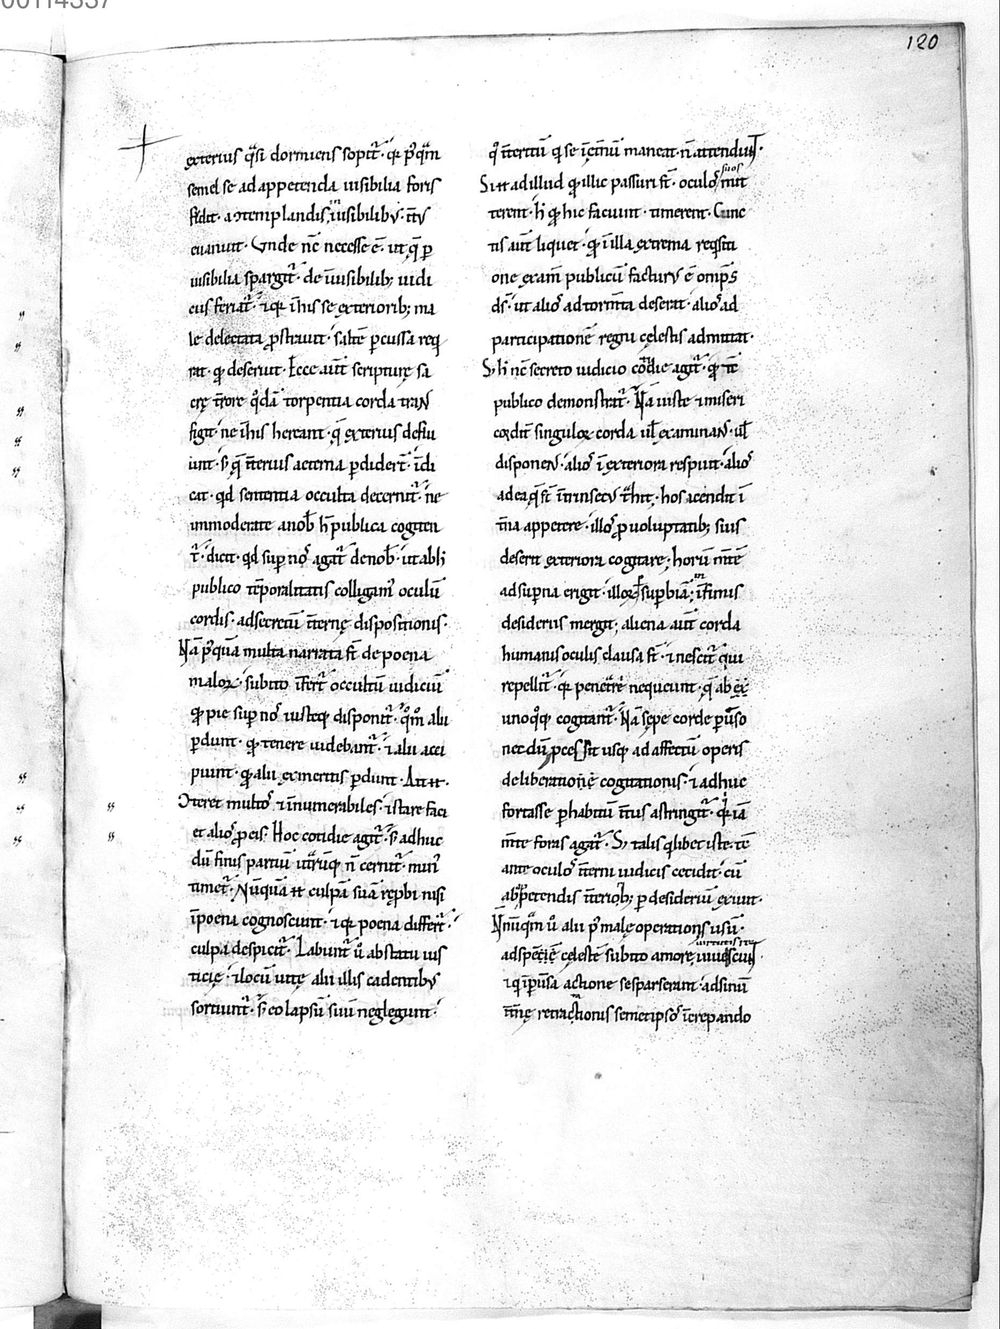 00114337
120
exterius q̃si dormiens sopit̃· q̃ p̃q̃m
semel se ad appetenda uisibilia foris
fũdit· a ↄtemplandis inuisibilib; ĩt;
euanuit· Vnde nc̃ necesse ẽ· ut q̃ p̱
uisibilia spargit̃· de ĩuisibilib; iudi
ciis feriat̃· ⁊ q̃ ĩ his se exteriorib; ma
le delectata p̱strauit· saltẽ p̱cussa req̃
rat· q̃ deseruit· Ecce aũt scripturę sa
crę t̃rore q̃dã torpentia corda trans
figit· ne ĩ his hereant· q̃ exterius deflu
unt· s; q̃ ĩterius aeterna p̱didert̃· ĩdi
cat· qd sententia occulta decernit̃· ne
immoderate a nob̃ h̃ publica cogiten
t̃· dicit· qd sup̱ nos agat̃ de nob̃· ut ab h
publico tẽporalitatis colligam̃ oculũ
cordis· ad secretũ ĩternę dispositionis·
Nã p̃quã multa narrata st̃ de poena
malor̃· subito ĩfert̃ occultũ iudiciũ
q̃ pie sup̱ nos iusteq; disponit̃· q̃m̃ alii
p̱dunt· q̃ tenere uidebant̃· ⁊ alii acci
piunt· q̃ alii ex meritis p̱dunt· Ait ⁊·
Ↄteret multos ⁊ ĩnumerabiles· ⁊ stare faci
et alios p̱ eis· Hoc cotidie agit̃· s; adhuc
dũ finis partiũ ut̃rũq; ñ cernit̃· min̉
timet̃· Nũquã ⁊ culpã suã rep̱bi nisi
ĩ poena cognoscunt· ⁊ q̃ poena differt̃·
culpa despicit̃· Labunt̃ ũ ab statu ius
ticię· ⁊ locũ uitę alii illis cadentib;
sortiunt̃· s; eo lapsũ suũ neglegunt·
q̉ ĩteritũ q̃ se ĩemũ maneat· ñ attendunt·
Si ⁊ ad illud q̃ illic passuri st̃· oculos suos mit
terent· h̃ q̃ hic faciunt· timerent· Cunc
tis aũt liquet· q̃ ĩ illa extrema reqisiti
one examẽ publicũ factur; ẽ omp̃s
ds̃· ut alios ad torm̃ta deserat· alios ad
participationẽ regni cęlestis admittat·
S; h̃ nc̃ secreto iudicio cotidie agit̃· q̃ tc̃
publico demonstrat̃· Nã iuste ⁊ miseri
corditer singulor̃ corda ul̃ examinans· ul̃
disponens· alios ĩ exteriora respuit· alios
ad ea q̃ st̃ ĩtrinsec; t̃hit; hos acendit ĩ
ĩt̃na appetere· illos p̱ uoluptatib; suis
deserit exteriora cogitare; horũ m̃tẽ
ad sup̱na erigit· illor̃ sup̱biã; in ĩfimis
desideriis mergit; aliena aũt corda
humanis oculis clausa st̃· ⁊ nescit̃ qui
repellit̃· q̃ penetrẽ nequeunt· q̃ ab ex
unoq̃q; cogitant̃· Nã sepe corde p̱uso
nec dũ p̱cessit usq; ad affectũ operis
deliberationẽ cogitationis· ⁊ adhuc
fortasse p̱ habitũ ĩtius astringit̃· q̃ iã
m̃te foras agat̃· S; talis qlibet iste· tc̃
ante oculos ĩterni iudicis cecidit· cũ
ab petendis ĩteriorib; p̱ desideriũ exiuit·
Nñũq̃m ũ alii p̃ male operationis usũ·
ad speciẽ cęlestẽ subito amore uirtutis reuiuiscunt·
⁊ q̃ ĩp̱usa actione se sparserant· ad sinũ
ĩt̃nę retractionis semetipsos ĩcrepando